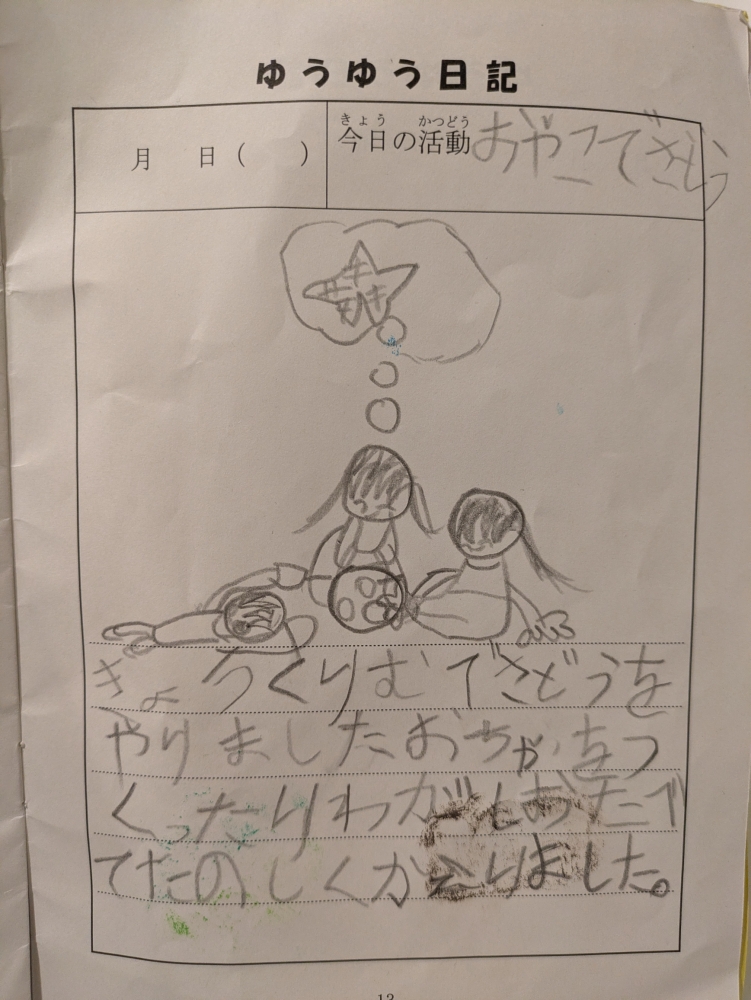 ゆうゆう日記
月 日( )
きょう かつどう
今日の活動 おやこでさどう
キキ
きょうくりむでさどうを
やりましたおちゃをつ
くったりわがしおたべ
てたのしくかえりました。
12